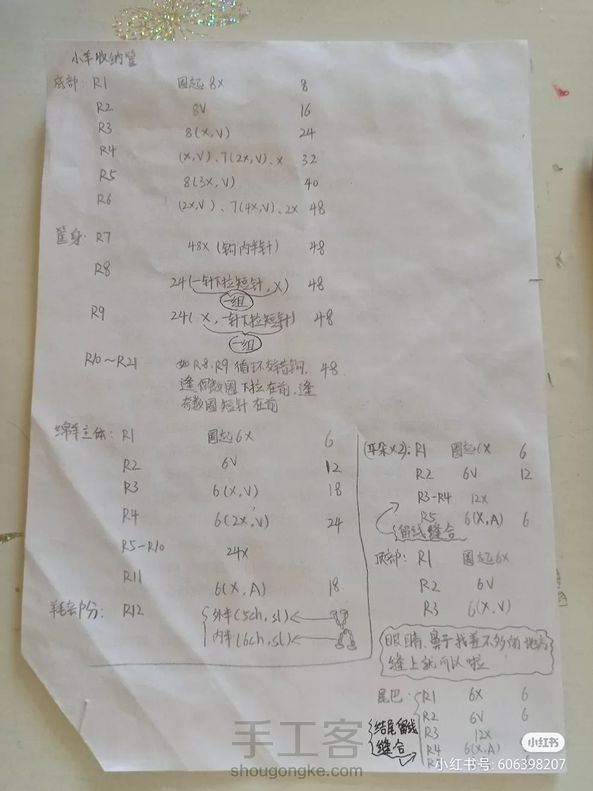 小羊收纳筐
底部: R1 圈起 8X 8
R2 8V 16
R3 8(X,V) 24
R4 (X,V)、7(2X,V)、X 32
R5 8(3X,V) 40
R6 (2X,V)、7(4X,V)、2X 48
筐身: R7 48X(钩内半针) 48
R8 24(一针下拉短针,X) 48
一组
R9 24(X,一针下拉短针) 48
一组
R10~R21 如R8.R9循环交错钩, 48
逢偶数圈下拉在前,逢
奇数圈短针在前
绵羊主体: R1 圈起6X 6
R2 6V 12
R3 6(X,V) 18
R4 6(2X,V) 24
R5-R10 24X
R11 6(X,A) 18
羊毛部分: R12 外半(5ch,sl)
内半(6ch,sl)
(耳朵X2): R1 圈起6X 6
R2 6V 12
R3-R4 12X
R5 6(X,A) 6
留线缝合
顶部: R1 圈起6X
R2 6V
R3 6(X,V)
眼睛、鼻子找差不多的地方
缝上就可以啦
尾巴: R1 6X 6
R2 6V 6
R3 12X
R4 6(X,A)
结尾留线
缝合
手工客
shougongke.com
小红书
小红书号: 606398207